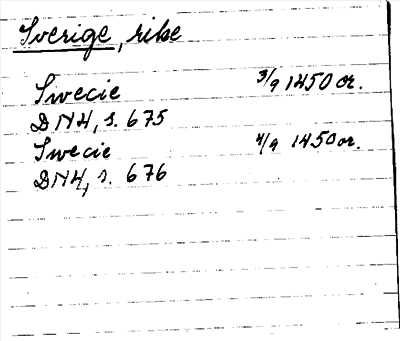 Sverige, rike
Swecie 3/9 1450 or.
DN4, s. 675
Swecie 4/9 1450 or.
DN4, s. 676